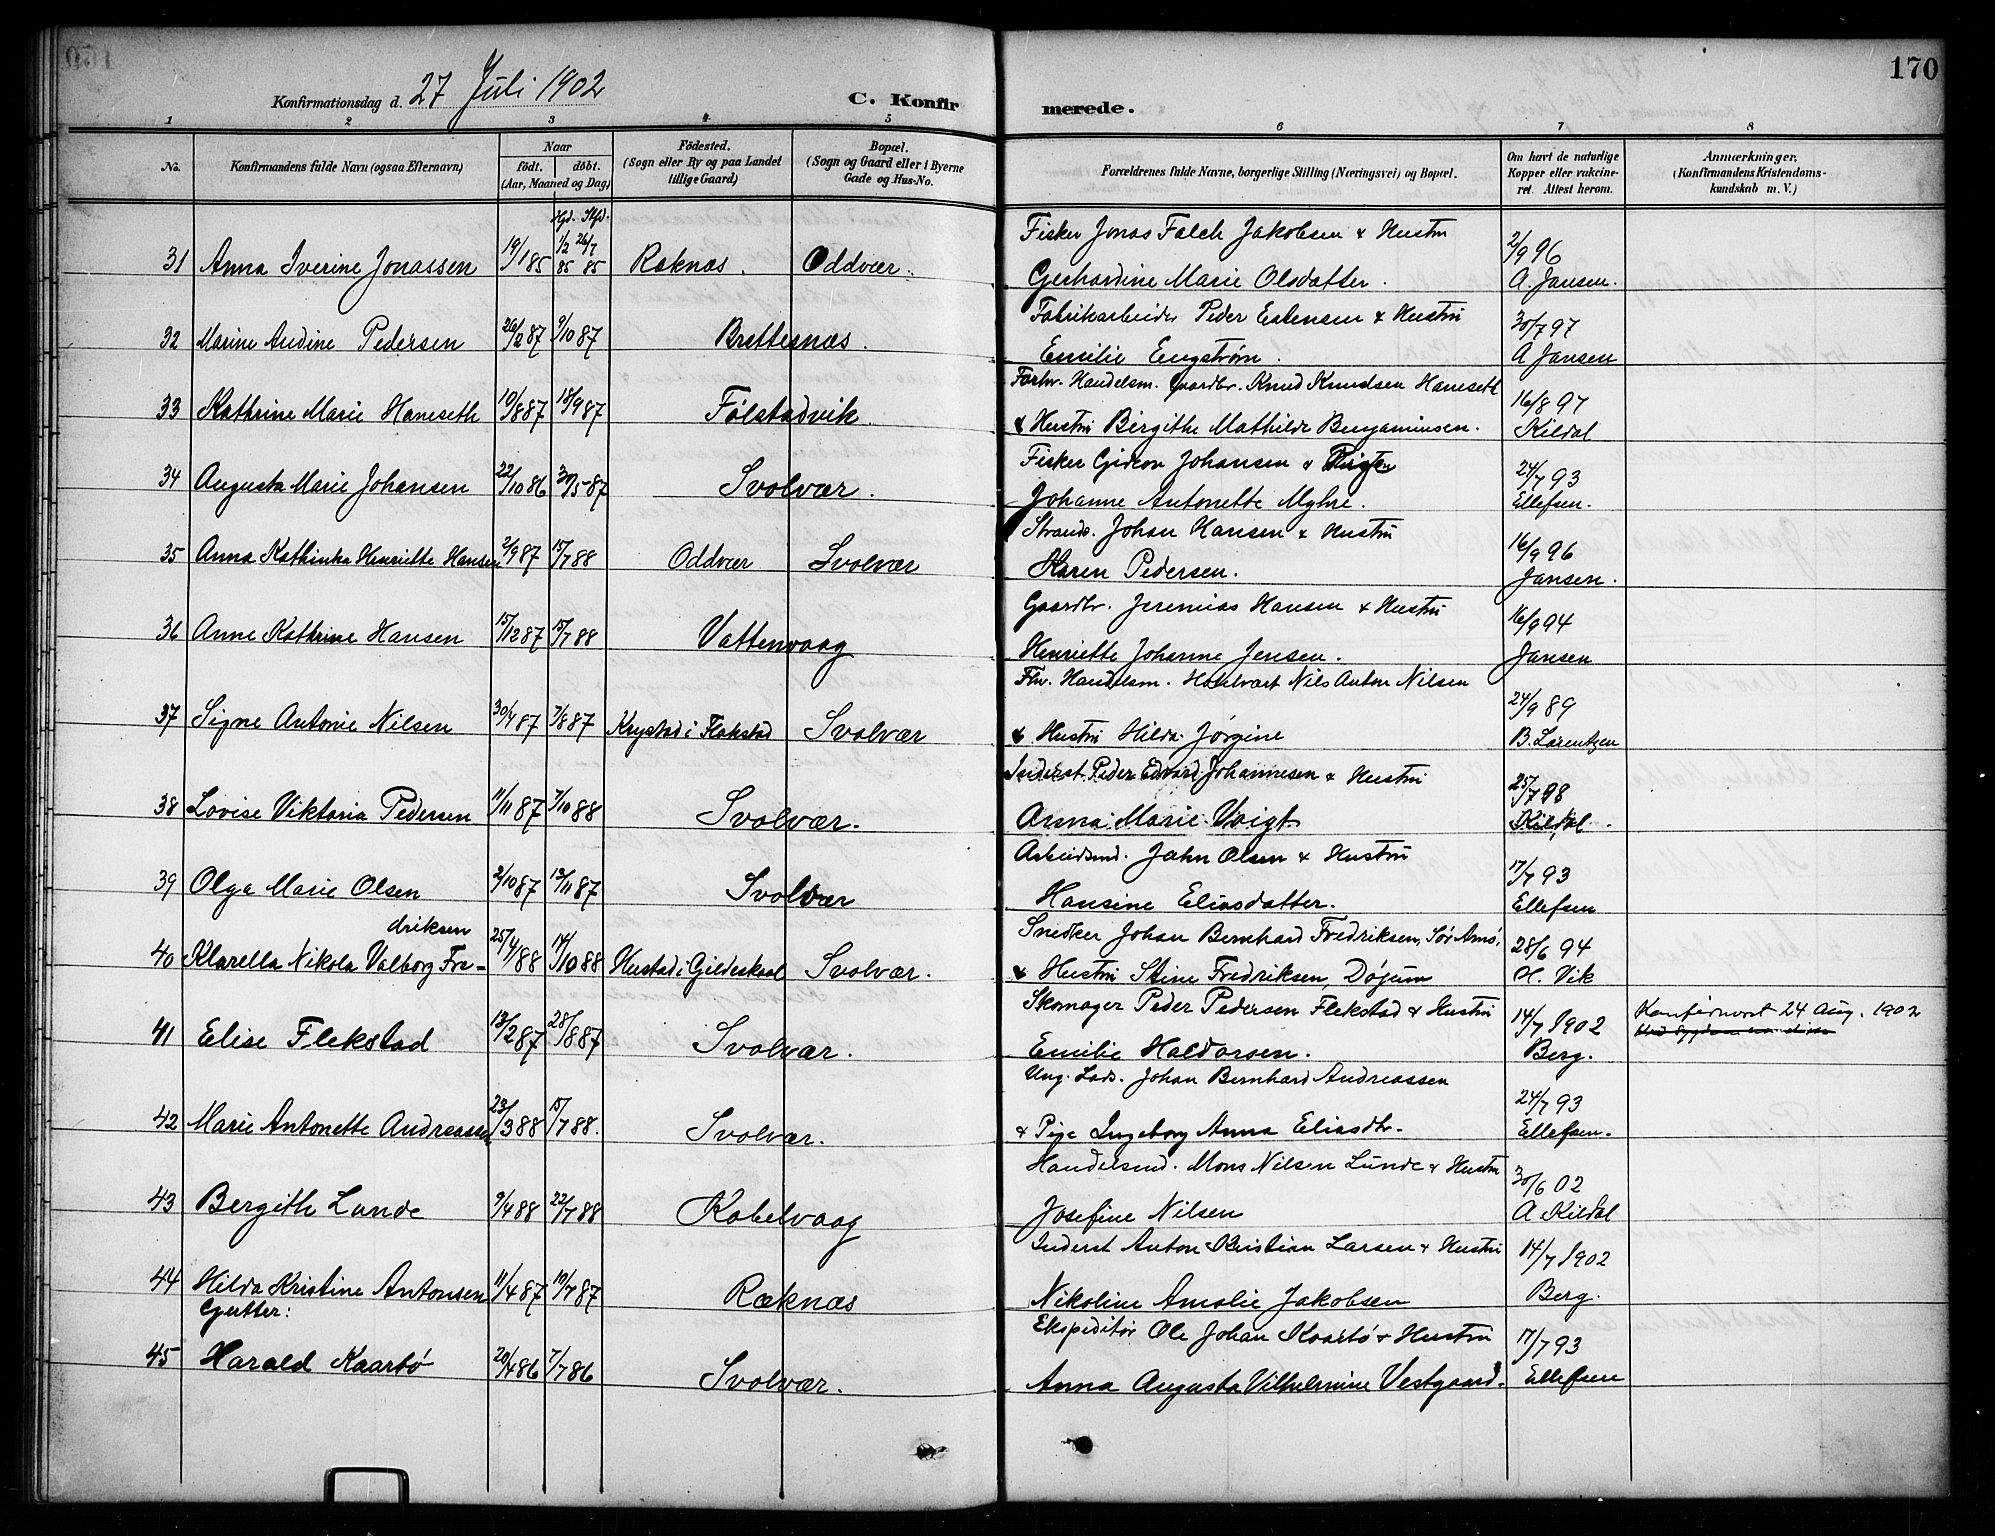 170
Konfirmationsdag d. 27 Juli 1902
C. Konfirmerede.
1 2 3 4 5 6 7 8
No.
Konfirmandens fulde Navn (ogsaa Efternavn)
Naar
født. døbt.
(Aar, Maaned og Dag)
Fødested.
(Sogn eller By og paa Landet
tillige Gaard)
Bopæl.
(Sogn og Gaard eller i Byerne
Gade og Hus-No.
Forældrenes fulde Navne, borgerlige Stilling (Næringsvei) og Bopæl.
Om havt de naturlige
Kopper eller vakcine-
ret. Attest herom.
Anmærkninger,
(Konfirmandens Kristendoms-
kundskab m. V.)
Hjd. Stfd.
31 Anna Iverine Jonassen 19/1 85 1/2 85 26/7 85 Ræknæs. Oddvær. Fisker Jonas Falch Jakobsen & Hustru
Gerhardine Marie Olsdatter. 2/9 96 A. Jansen.
32 Marine Andine Pedersen 26/2 87 9/10 87 Brettesnæs. Fabrikarbeider Peder Estensen & Hustru
Emilie Engstrøm. 30/7 97 A Jansen
33 Kathrine Marie Haneseth 10/8 87 18/9 87 Følstadvik. Forhv. Handelsm. Gaardbr. Knud Knudsen Haneseth
& Hustru Birgithe Mathilde Benjaminsen. 16/8 97 Kildal
34 Augusta Marie Johansen 22/10 86 30/5 87 Svolvær. Fisker Gideon Johansen &
Johanne Antonette Myhre. 24/7 93 Ellefsen.
35 Anna Kathinka Henriette Hansen 2/9 87 15/7 88 Oddvær Svolvær Strands. Johan Hansen & Hustru
Karen Pedersen. 16/9 96 Jansen.
36 Anne Kathrine Hansen 15/12 87 15/7 88 Vattervaag Gaardbr. Jeremias Hansen & Hustru
Henriette Johanne Jensen. 16/9 94 Jansen
37 Signe Antonie Nilsen 30/4 87 7/8 87 Krystad i Flakstad Svolvær Fhv. Handelsm. Nils Anton Nilsen
& Hustru Hilda Jørgine 24/9 89 B. Lorentzen
38 Lovise Viktoria Pedersen 11/11 87 7/10 88 Svolvær. Inderst. Peder Edvard Johannesen & Hustru
Anna Marie Voigt 25/7 98 Kildal.
39 Olga Marie Olsen 2/10 87 13/11 87 Svolvær Arbeidsmd. Jahn Olsen & Hustru
Hansine Eliasdatter. 17/7 93 Ellefsen
driksen
40 Klarella Nikola Valborg Fre- 25/4 88 14/10 88 Hustad i Gildeskaal Svolvær. Snedker Johan Bernhard Fredriksen, Sør Arnø,
& Hustru Stine Fredriksen, 28/6 94 H. Vik
41 Elise Flekstad 13/2 87 28/8 87 Svolvær. Skomager Peder Pedersen Flekstad & Hustru
Emilie Haldorsen. 14/7 1902 Berg. Konfirmeret 24 Aug. 1902
42 Marie Antonette Andreassen 23/3 88 15/7 88. Svolvær. Ung. Lods. Johan Bernhard Andreassen
& Pige Ingeborg Anna Eliasdtr. 24/7 93 Ellefsen.
43 Bergith Lunde 9/4 88 22/7 88 Kabelvaag Handelsmd. Mons Nilsen Lunde & Hustru
Josefine Nilsen 30/6 02 A Kildal
44 Hilda Kristine Antonsen 11/4 87 10/7 87 Ræknæs Inderst Anton Kristian Larsen & Hustru
Nikoline Amalie Jakobsen 14/7 1902 Berg.
Gutter:
45 Harald Kaarbø 20/4 86 7/7 86 Svolvær. Ekspeditør Ole Johan Kaarbø & Hustru
Anna Augusta Vilhelmine Vestgaard. 17/7 93 Ellefsen